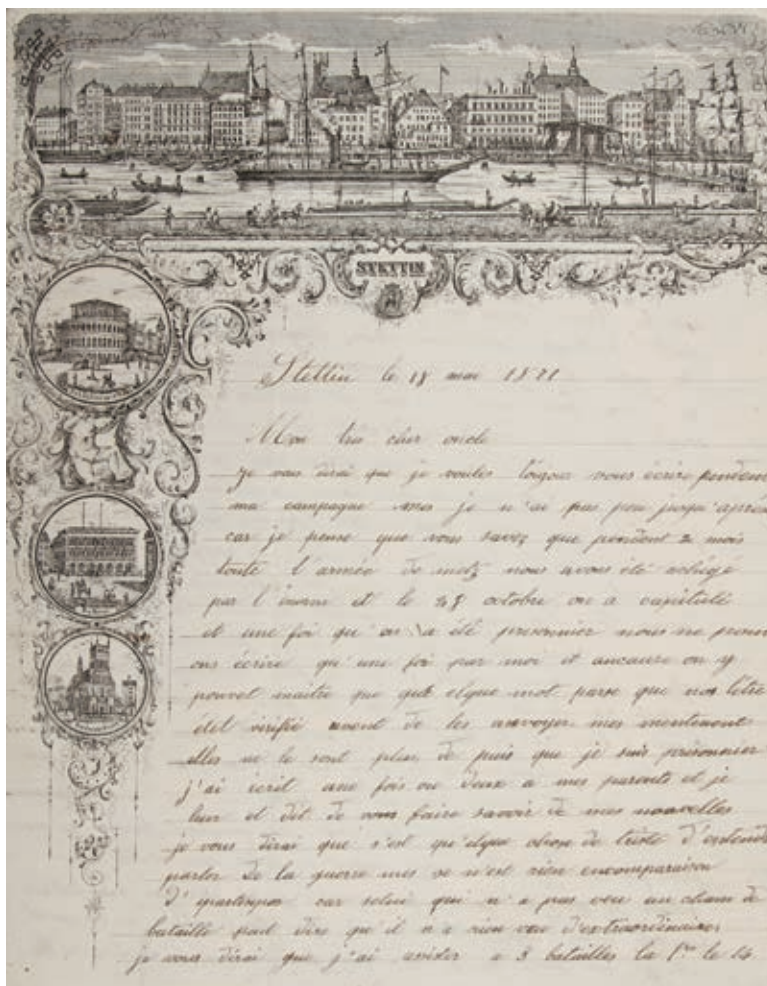 STETTIN
Stettin le 18 mai 1871
Mon très cher oncle
je vous dirai que je voules toujour vous écrire pendent
ma campagne mes je n'ai pas peu jusqu'aprés
car je pense que vous savez que pendent 2 mois
toute l'armée de metz nous avons été
par l' et le 28 octobre on a capitulé
et une foi qu'on a été prisonnier nous ne
ons écrire qu'une foi par moi et ancaure on y
pouvet maitre que quelque mot parse que nos letre
étét vérifié avant de les anvoyer mes mentenent
elles ne le sont plus de puis que je suis prisonnier
j'ai écrit une fois ou deux a mes parents et je
leur et dit de vous faire savoir de mes nouvelles
je vous dirai que s'est qu'elque chose de triste d'entendr
parler de la guerre mes se n'est rien encomparaison
d' car selui qui n'a pas veu un cham de
bataille peut dire qu'il n'a rien veu d'extraordinaire
je vous dirai que j'ai asister a 3 batailles la 1re le 14